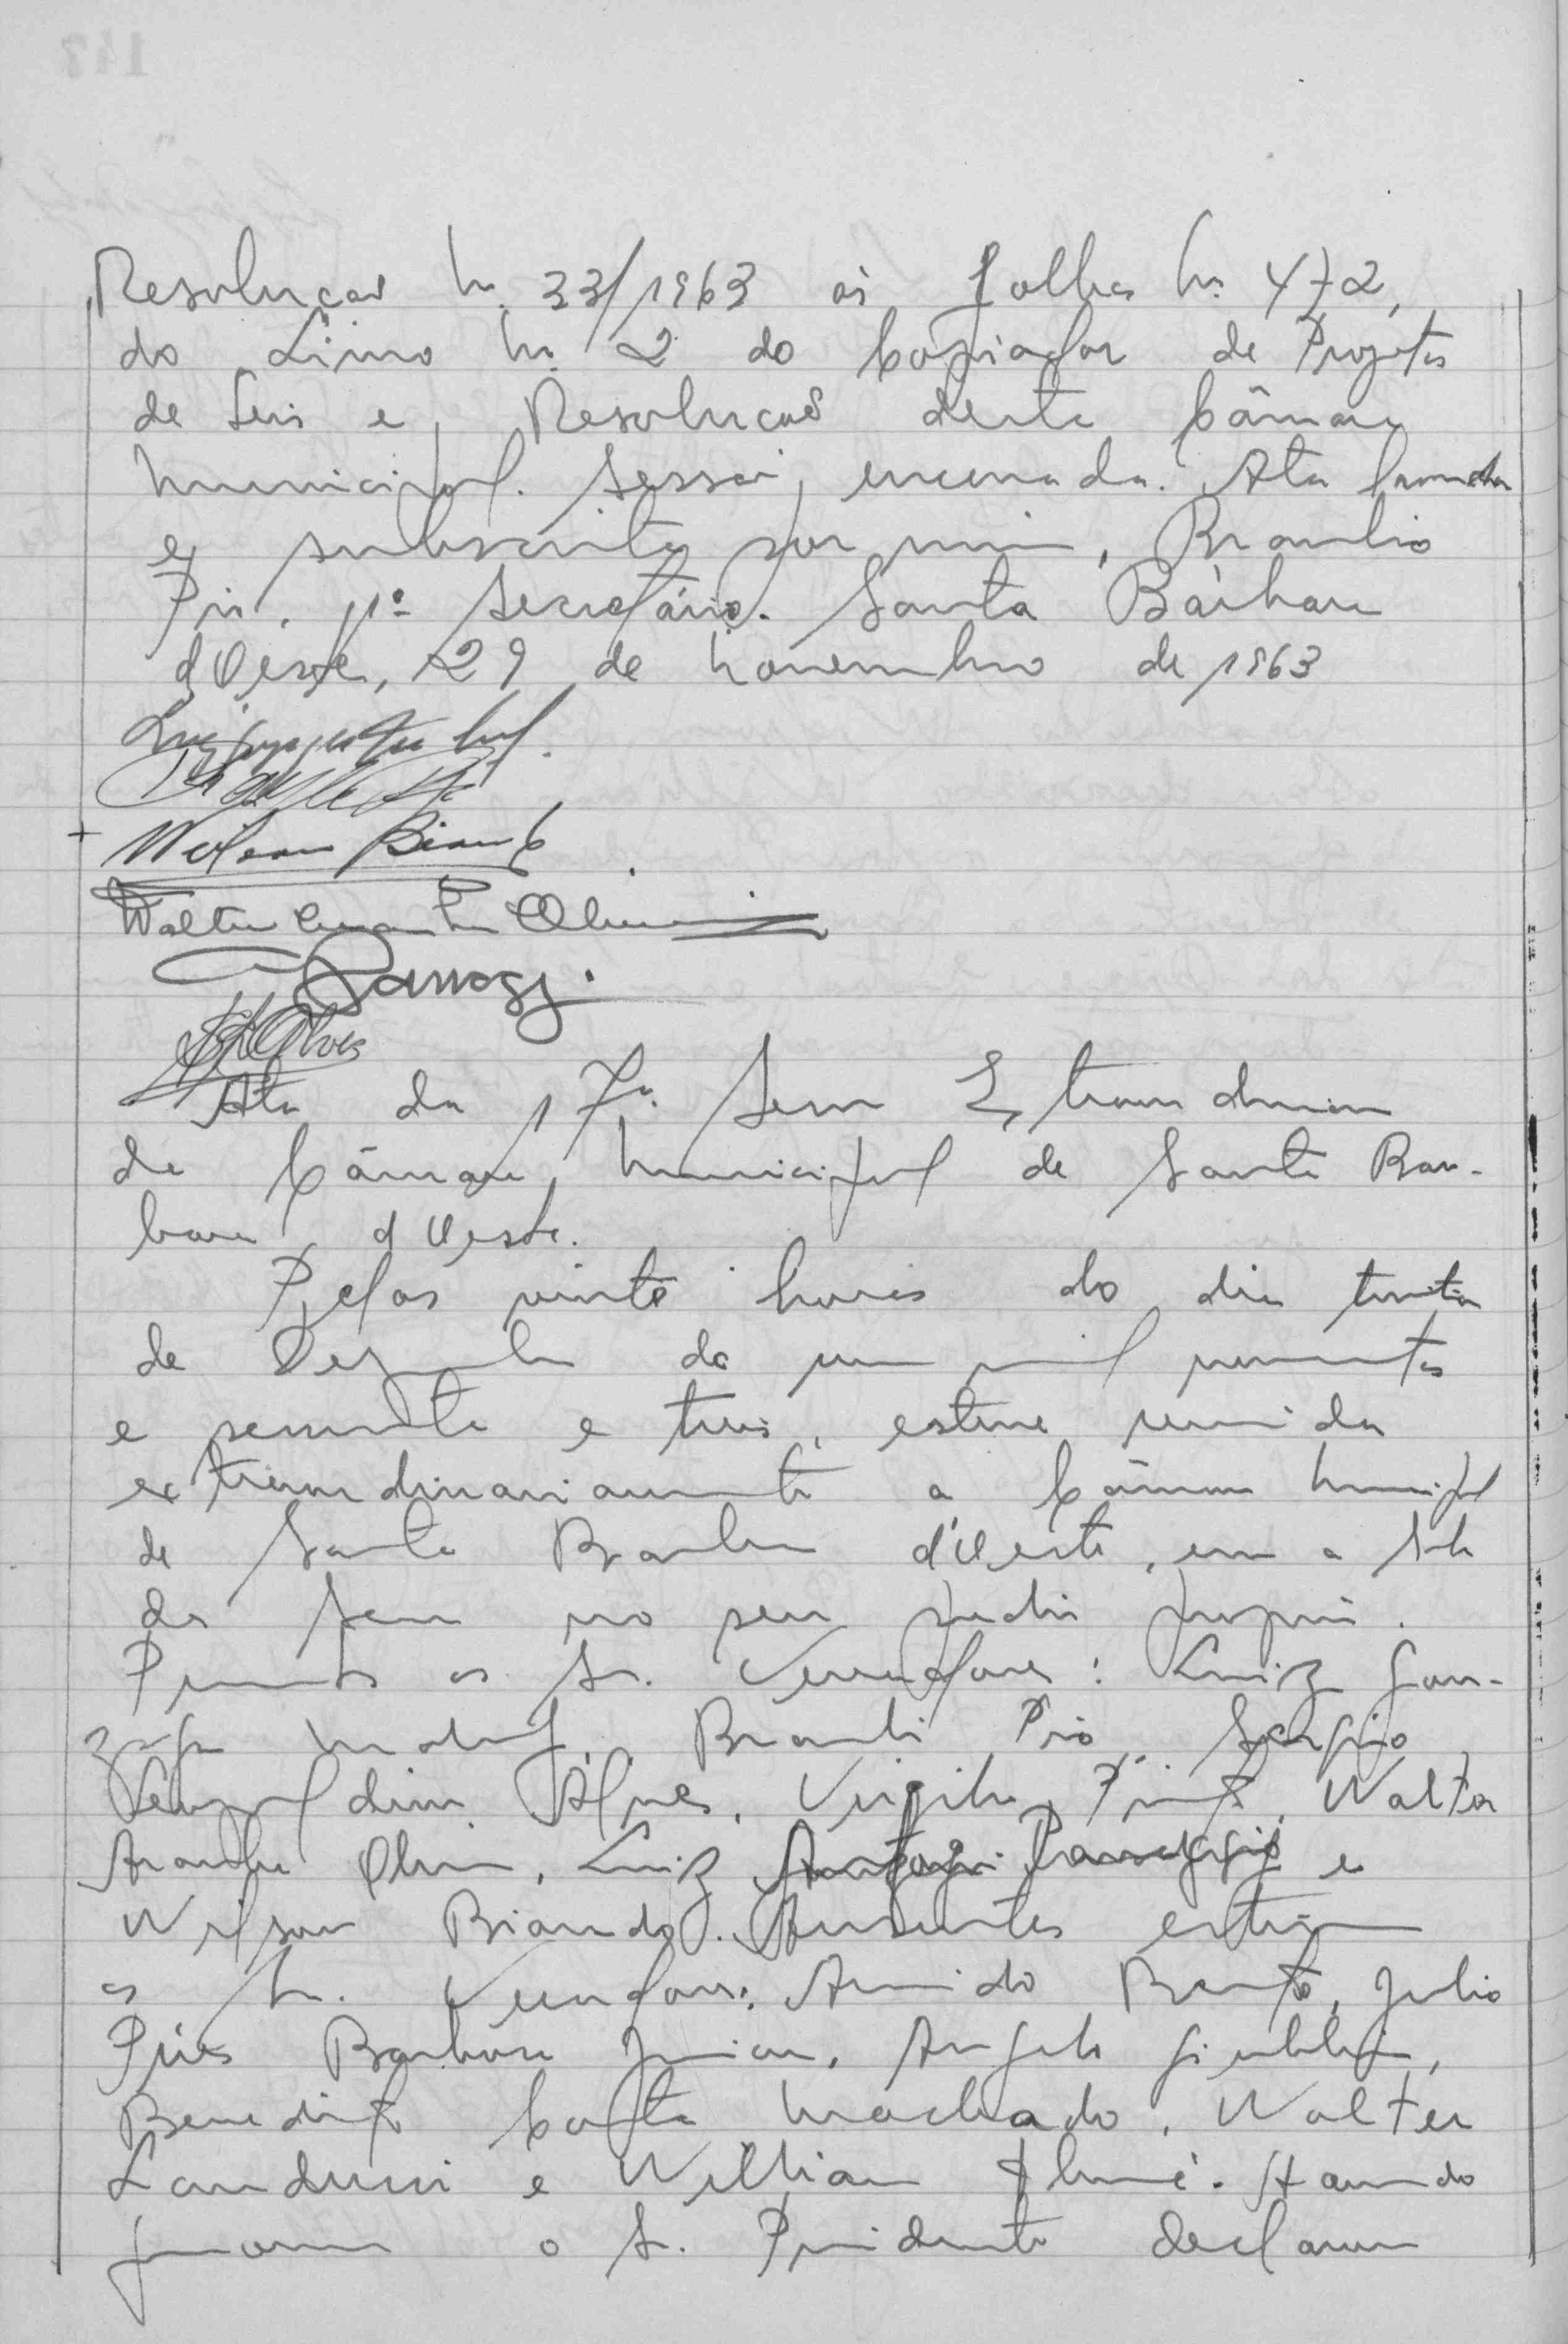 Resolução n. 33/1963 às folhas n. 472,
do Livro n. 2 do Copiador de Projetos
de Leis e Resolução desta Câmara
municipal. Sessão encerrada. Ata lavrada
e subscrita por mim, Braulio
Pio, 1º Secretário. Santa Bárbara
d'Oeste, 29 de novembro de 1963
Wilson
Walter Oliveira
Alves
Ata da 17a. Sessão Extraordinaria
da Câmara municipal de Santa Bar-
bara d'Oeste.
Pelas vinte horas do dia trinta
de Dezembro de um mil novecentos
e sessenta e tres, esteve reunida
extraordinariamente a Câmara municipal
de Santa Barbara d'Oeste, em a Sala
de Sessão no seu predio proprio.
Presentes os Sr. Vereadores: Luiz Gon-
zaga Braulio Pio, Sergio
Leopoldino Alves, Virgilio Walter
Oliveira, Luiz Antonio Panaggio e
Wilson Biando. Ausentes
os Sr. Vereadores: Bento, Julio
Pires Barbosa Junior, Angelo
Benedito Costa Machado, Walter
Landucci e Willian Havendo
o Sr. Presidente declarou